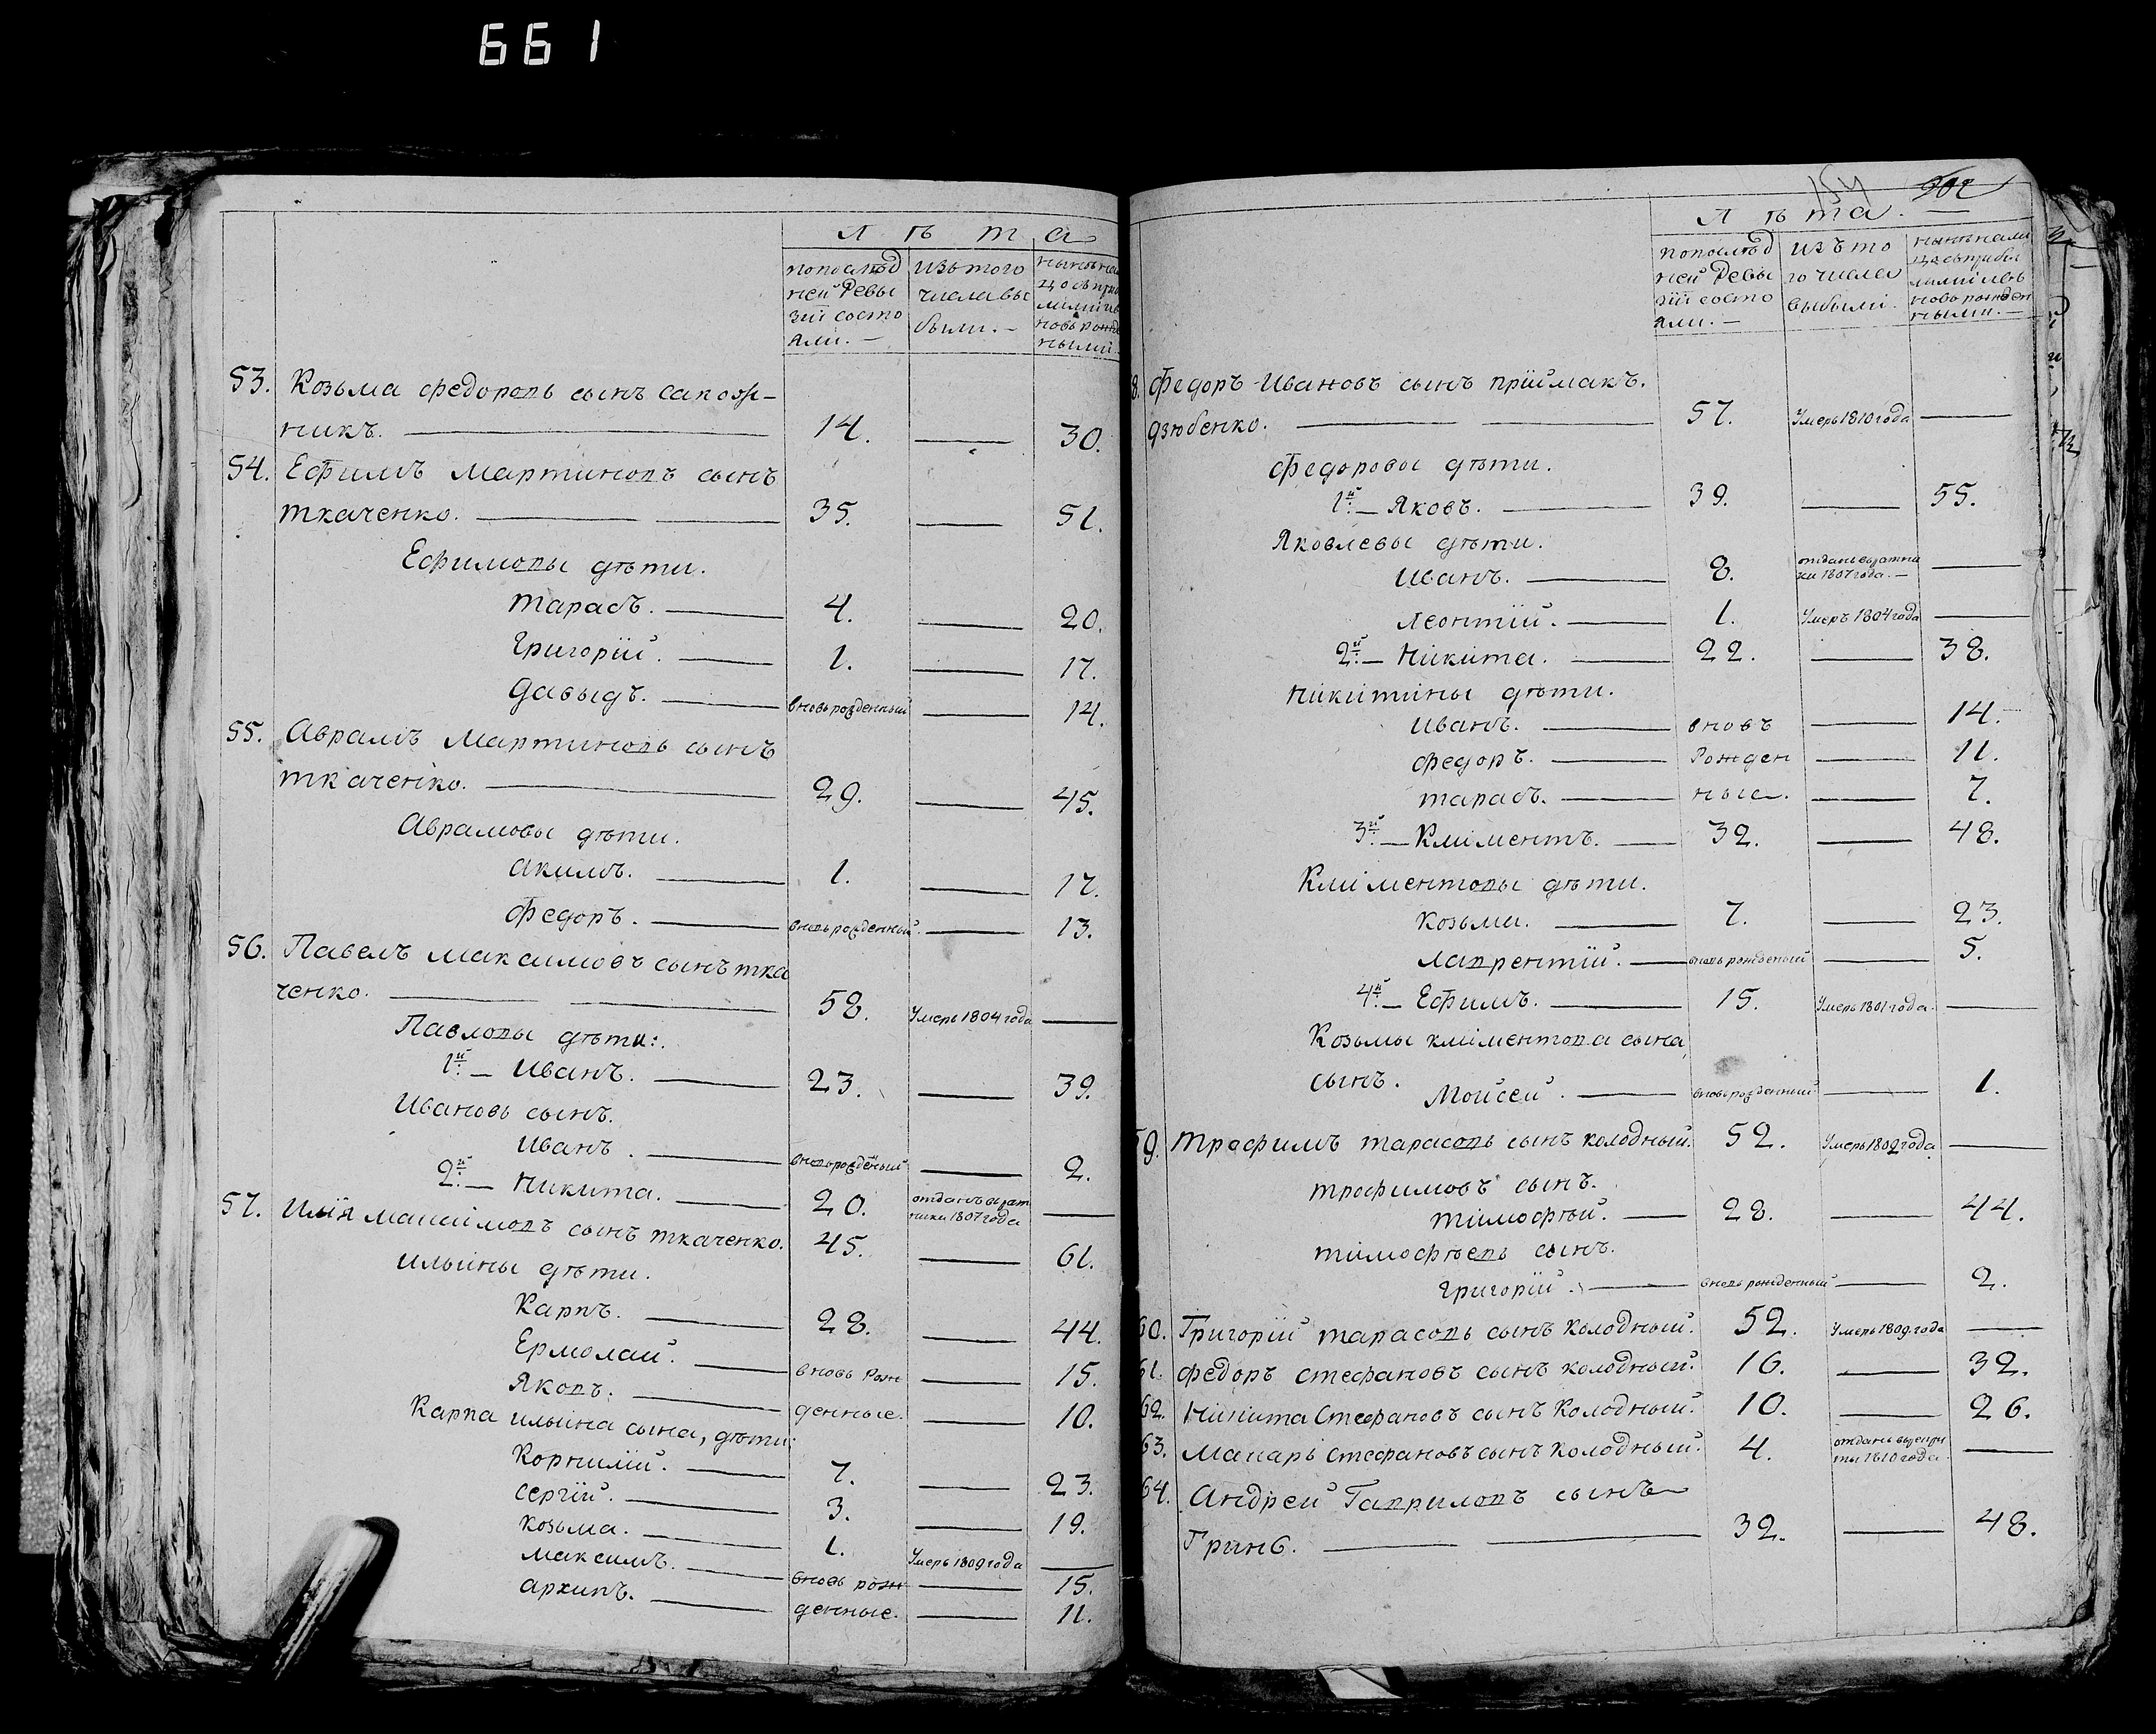 661
Лѣта
попослѣд ней Ревы зіи состо яли. —
изътого числавы были. —
53. Козьма федоровъ сынъ сапож-
никъ. — 14. — 30.
54. Ефимъ Мартиновъ сынъ
ткаченко. — 35. — 51.
Ефимовы дѣти.
тарасъ. — 4. — 20.
Григорій. — 1. — 17.
Давыдъ. — вновьрожденный — 14.
55. Аврамъ Мартиновъ сынъ
ткаченко. — 29. — 45.
Аврамовы дѣти.
акимъ. — 1. — 17.
федоръ. — вновьрожденный — 13.
56. Павелъ Максимовъ сынъ тка
ченко. — 58. Умеръ 1804 года —
Павловы дѣти.
1й — Иванъ. — 23. — 39.
Ивановъ сынъ.
Иванъ. — вновьрожденный — 2.
2й — Никита. — 20. отданъ врат ники 1807 года —
57. Илія Максимовъ сынъ ткаченко. 45. — 61.
ильины дѣти.
Карпъ. — 28. — 44.
Ермолай. — вновь Рож — 15.
Яковъ. — денные. — 10.
Карпа ильина сына, дѣти.
Корнилій. — 7. — 23.
сергій. — 3. — 19.
козьма. — 1. Умеръ 1809 года —
максимъ. — вновь рож — 15.
архипъ. — денные. — 11.
154 202
Лѣта. —
попослѣд ней Ревы зіи состо яли. —
изъто го числа выбыли.
8. федоръ Ивановъ сынъ пріймакъ.
дзюбенко. — 57. Умеръ 1810 года —
федоровы дѣти.
1й — Яковъ. — 39. — 55.
Яковлевы дѣти.
Иванъ. — 8. отданъ вратни ки 1807 года. — —
леонтій. — 1. Умеръ 1804 года —
2й — Никита. — 22. — 38.
Никитины дѣти.
Иванъ. — вновъ — 14.
федоръ. — Рожден — 11.
тарасъ. — ные. — 7.
3й — Климентъ. — 32. — 48.
Климентовы дѣти.
козьма. — 7. — 23.
лаврентій. — вновьрожденный — 5.
4й — Ефимъ. — 15. Умеръ 1801 года. —
Козьмы климентова сына,
сынъ. Мойсей. — вновьрожденный — 1.
59. Трофимъ тарасовъ сынъ колодный. 52. Умеръ 1802 года —
трофимовъ сынъ.
тимофѣй. — 28. — 44.
тимофѣевъ сынъ.
григорій. — вновьрожденный — 2.
60. Григорій тарасовъ сынъ колодный. 52. Умеръ 1809 года —
61. федоръ стефановъ сынъ колодный. 16. — 32.
62. Никита Стефановъ сынъ Колодный. 10. — 26.
63. Макаръ Стефановъ сынъ колодный. 4. отданъ врекру ты 1810 года. —
64. Андрей Гавриловъ сынъ
Гринь. — 32. — 48.